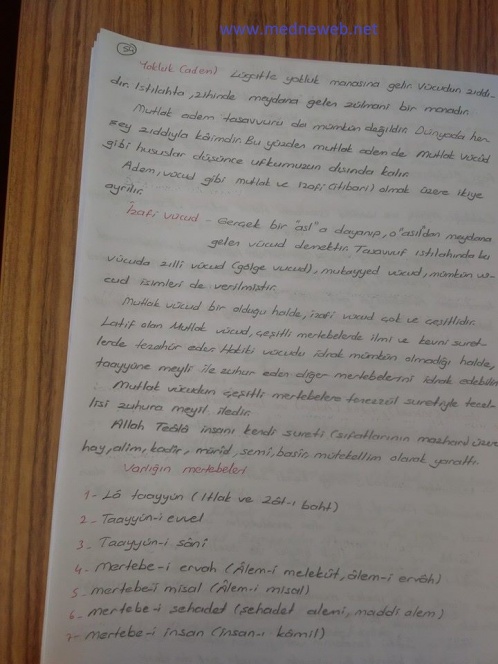 www.medneweb.net
54
Yokluk (adem) Lügatte yokluk manasına gelir. Vücudun zıddı-
dır. Istılahta, zihinde meydana gelen zülmani bir manadır.
Mutlak adem tasavvuru da mümkün değildir. Dünyada her-
şey zıddıyla kâimdir. Bu yüzden mutlak adem de Mutlak vücûd
gibi hususlar düşünce ufkumuzun dışında kalır.
Adem, vücud gibi mutlak ve izafi (itibari) olmak üzere ikiye
ayrılır.
İzafi vücud - Gerçek bir "asl"a dayanıp, o "asıl"dan meydana
gelen vücud demektir. Tasavvuf ıstılahında bu
vücuda zilli vücud (gölge vucud), mukayyed vücud, mümkün vü-
cud isimleri de verilmiştir.
Mutlak vücud bir olduğu halde, izafi vücud çok ve çeşitlidir.
Latif olan Mutlak vücud, çeşitli mertebelerde ilmi ve kevni suret-
lerde tezahür eder. Hakiki vücudu idrak mümkün olmadığı halde,
taayyüne meyli ile zuhur eden diğer mertebelerini idrak edebiliriz
Mutlak vücudun çeşitli mertebelere tenezzül suretiyle tecel-
lisi zuhura meyil iledir.
Allah Teâlâ insanı kendi sureti (sıfatlarının mazharı) üzere
hay, alim, kadîr, mürid, semi, basir, mütekellim olarak yarattı.
Varlığın mertebeleri
1- Lâ taayyün (Itlak ve Zât-ı baht)
2- Taayyün-i evvel
3- Taayyün-i sânî
4- mertebe-i ervah (Âlem-i melekût, âlem-i ervâh)
5- mertebe-i misal (Âlem-i misal)
6- mertebe-i şehadet (şehadet alemi, maddi alem)
7- mertebe-i insan (insan-ı kâmil)